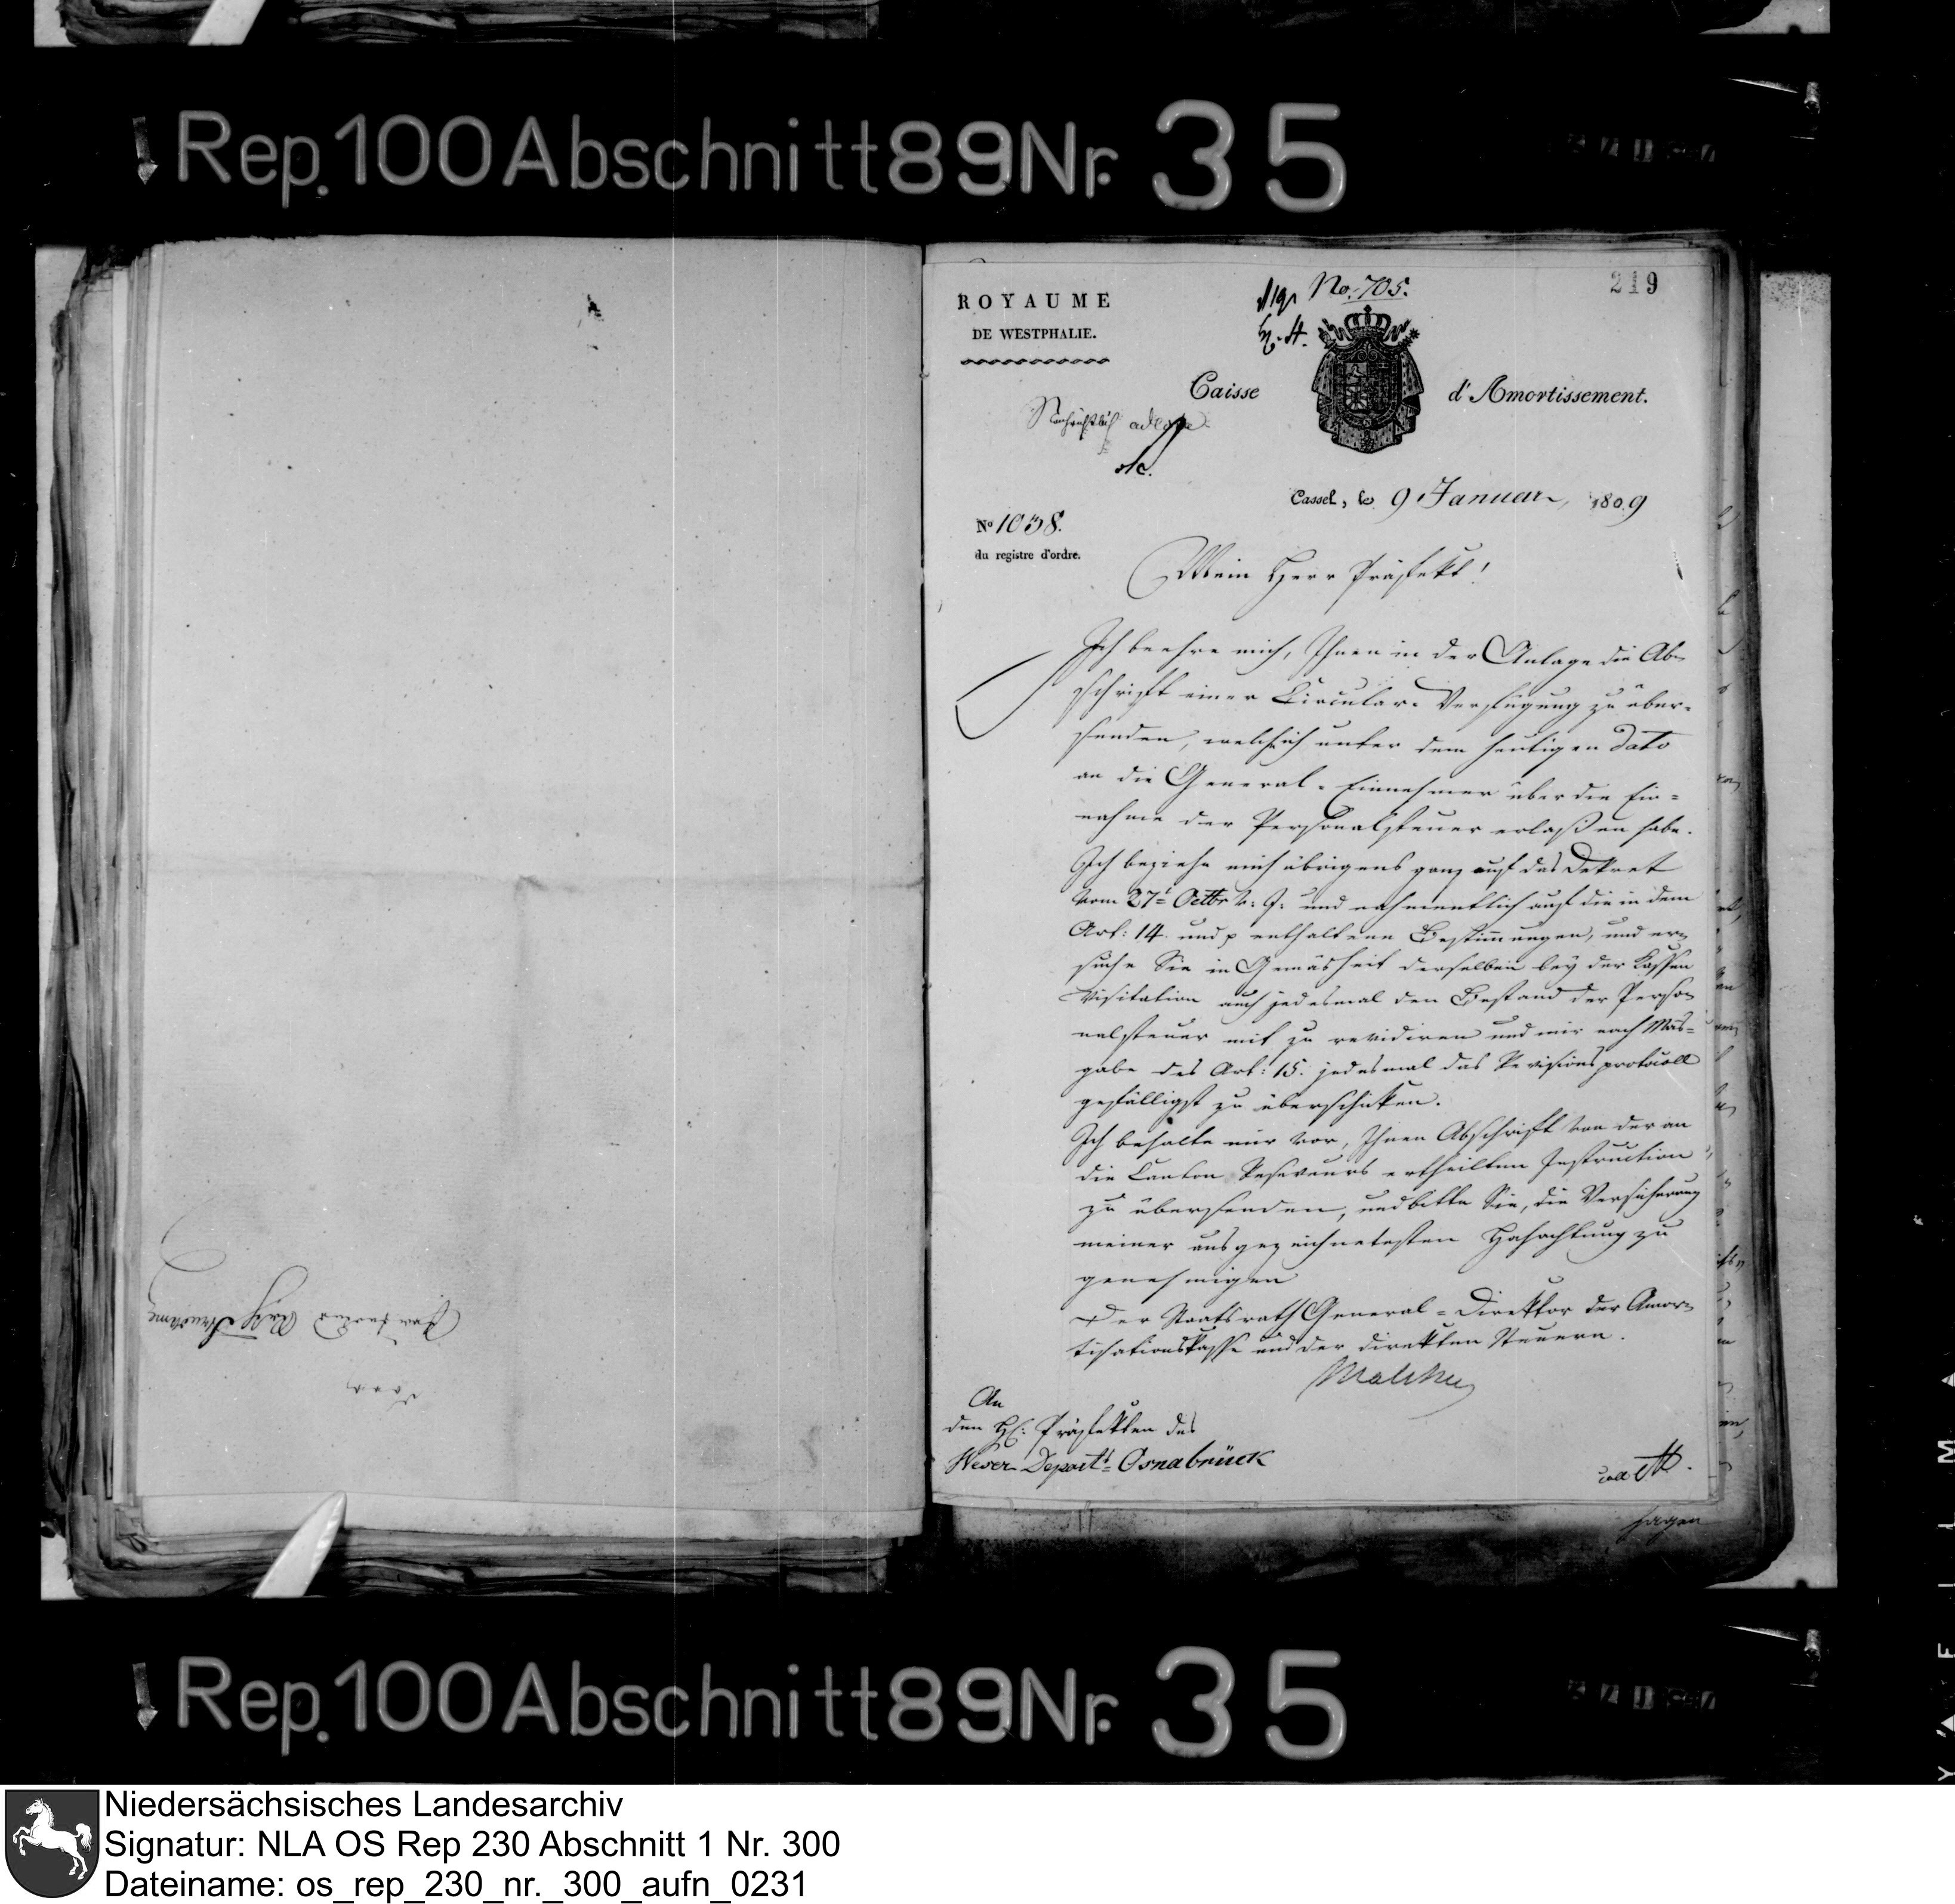 Rep. 100 Abschnitt 89 Nr. 35
219
No. 705.
ROYAUME
DE WESTPHALIE.
Caisse d'Amortissement.
Cassel, le 9 Januar, 1809
No 1038.
du registre d'ordre.
Mein Herr Präfekt!
Ich beehre mich, Ihnen in der Anlage die Ab-
schrift einer Circular-Verfügung zu über-
senden, welch ich unter dem heutigen Dato
an die General-Einnehmer über die Ein-
nahme der Personalsteuer erlaßen habe.
Ich beziehe mich übrigens ganz auf das Dekret
vom 27t Octbr v. J: und nahmentlich auf die in dem
Art: 14. und enthaltene Bestimmungen, und er-
suche Sie in Gemäsheit derselben bey der Kassen
Visitation auch jedesmal den Bestand der Perso-
nalsteuer mit zu revidiren und mir nach Mas-
gabe des Art: 15. jedesmal das Revisionsprotocoll
gefälligst zu überschicken.
Ich behalte mir vor, Ihnen Abschrift von der an
die Canton Receveurs ertheilten Instruction
zu übersenden, und bitte Sie, die Versicherung
meiner ausgezeichnetesten Hochachtung zu
genehmigen
Der Staatsrath General-Direktor der Amor-
tisationskasse und der direkten Steuern.
Malchus
An
den H: Präfekten des
Weser Departs Osnabrück
Rep. 100 Abschnitt 89 Nr. 35
Niedersächsisches Landesarchiv
Signatur: NLA OS Rep 230 Abschnitt 1 Nr. 300
Dateiname: os_rep_230_nr._300_aufn_0231